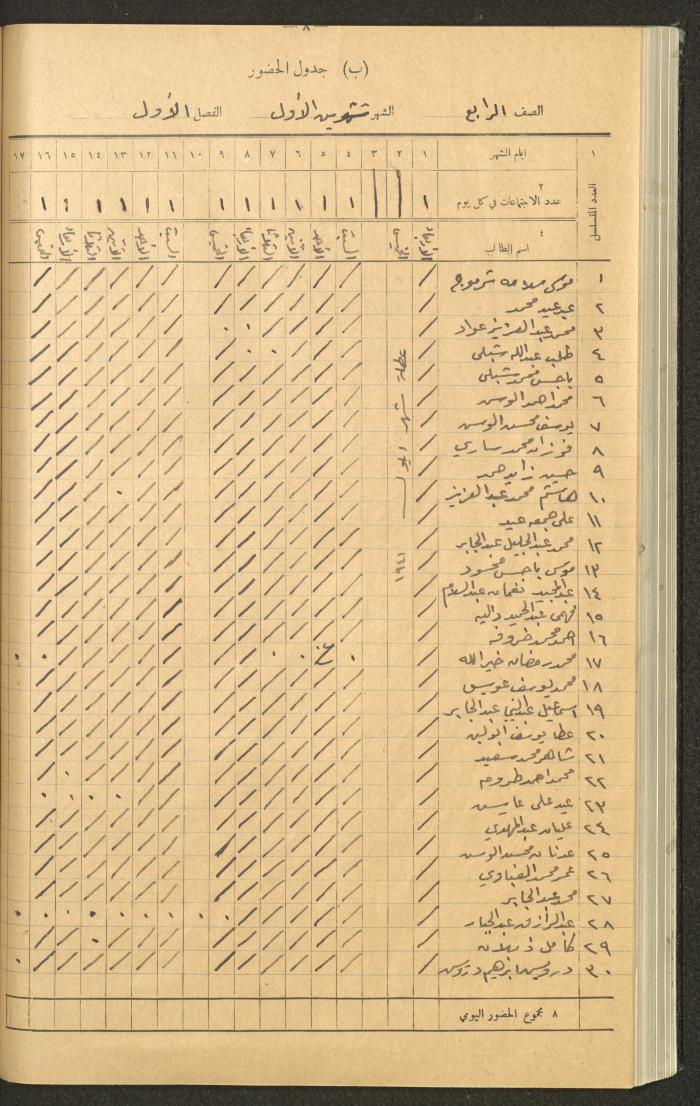 — ٨ —
(ب) جدول الحضور
الصف الرابع الشهر تشرين الأول الفصل الأول
١ ايام الشهر ١ ٢ ٣ ٤ ٥ ٦ ٧ ٨ ٩ ١٠ ١١ ١٢ ١٣ ١٤ ١٥ ١٦ ١٧
العدد المتسلسل
٢
عدد الاجتماعات في كل يوم ١ ١ ١ ١ ١ ١ ١ ١ ١ ١ ١ ١ ١
٤
اسم الطالب الأربعاء الخميس السبت الأحد الاثنين الثلاثا الأربعاء الخميس السبت الأحد الاثنين الثلاثا الأربعاء الخميس
عطلة شهر ايلول ١٩٤١
١ موسى سلامه
٢ عيد محمد
٣ محمد عبد العزيز عواد
٤ طلب عبد الله شبلي
٥ باجس محمد شبلي
٦ محمد احمد الوسن
٧ يوسف محسن الوسن
٨ فوزات محمد ساري
٩ حسين زايد حمد
١٠ هاشم محمد عبد العزيز
١١ علي جمعه عيد
١٢ محمد عبد الجليل عبد الجابر
١٣ موسى باجس محمود
١٤ عبد المجيد نعمان عبد السلام
١٥ فهمي عبد الحميد داليه
١٦ احمد محمد خروفه
١٧ محمد رمضان خير الله غ
١٨ محمد يوسف عويس
١٩ اسماعيل عبد الجابر
٢٠ عطا يوسف ابو لبن
٢١ شاهر محمد سعيد
٢٢ محمد احمد
٢٣ عيد علي عايش
٢٤ عليان عبد المهدي
٢٥ عدنان محسن الوسن
٢٦ عمر محمد
٢٧ محمد عبد الجابر
٢٨ عبد الرازق عبد الجبار
٢٩ كامل ذيبان
٣٠ درويش ابراهيم درويش
٨ مجموع الحضور اليومي